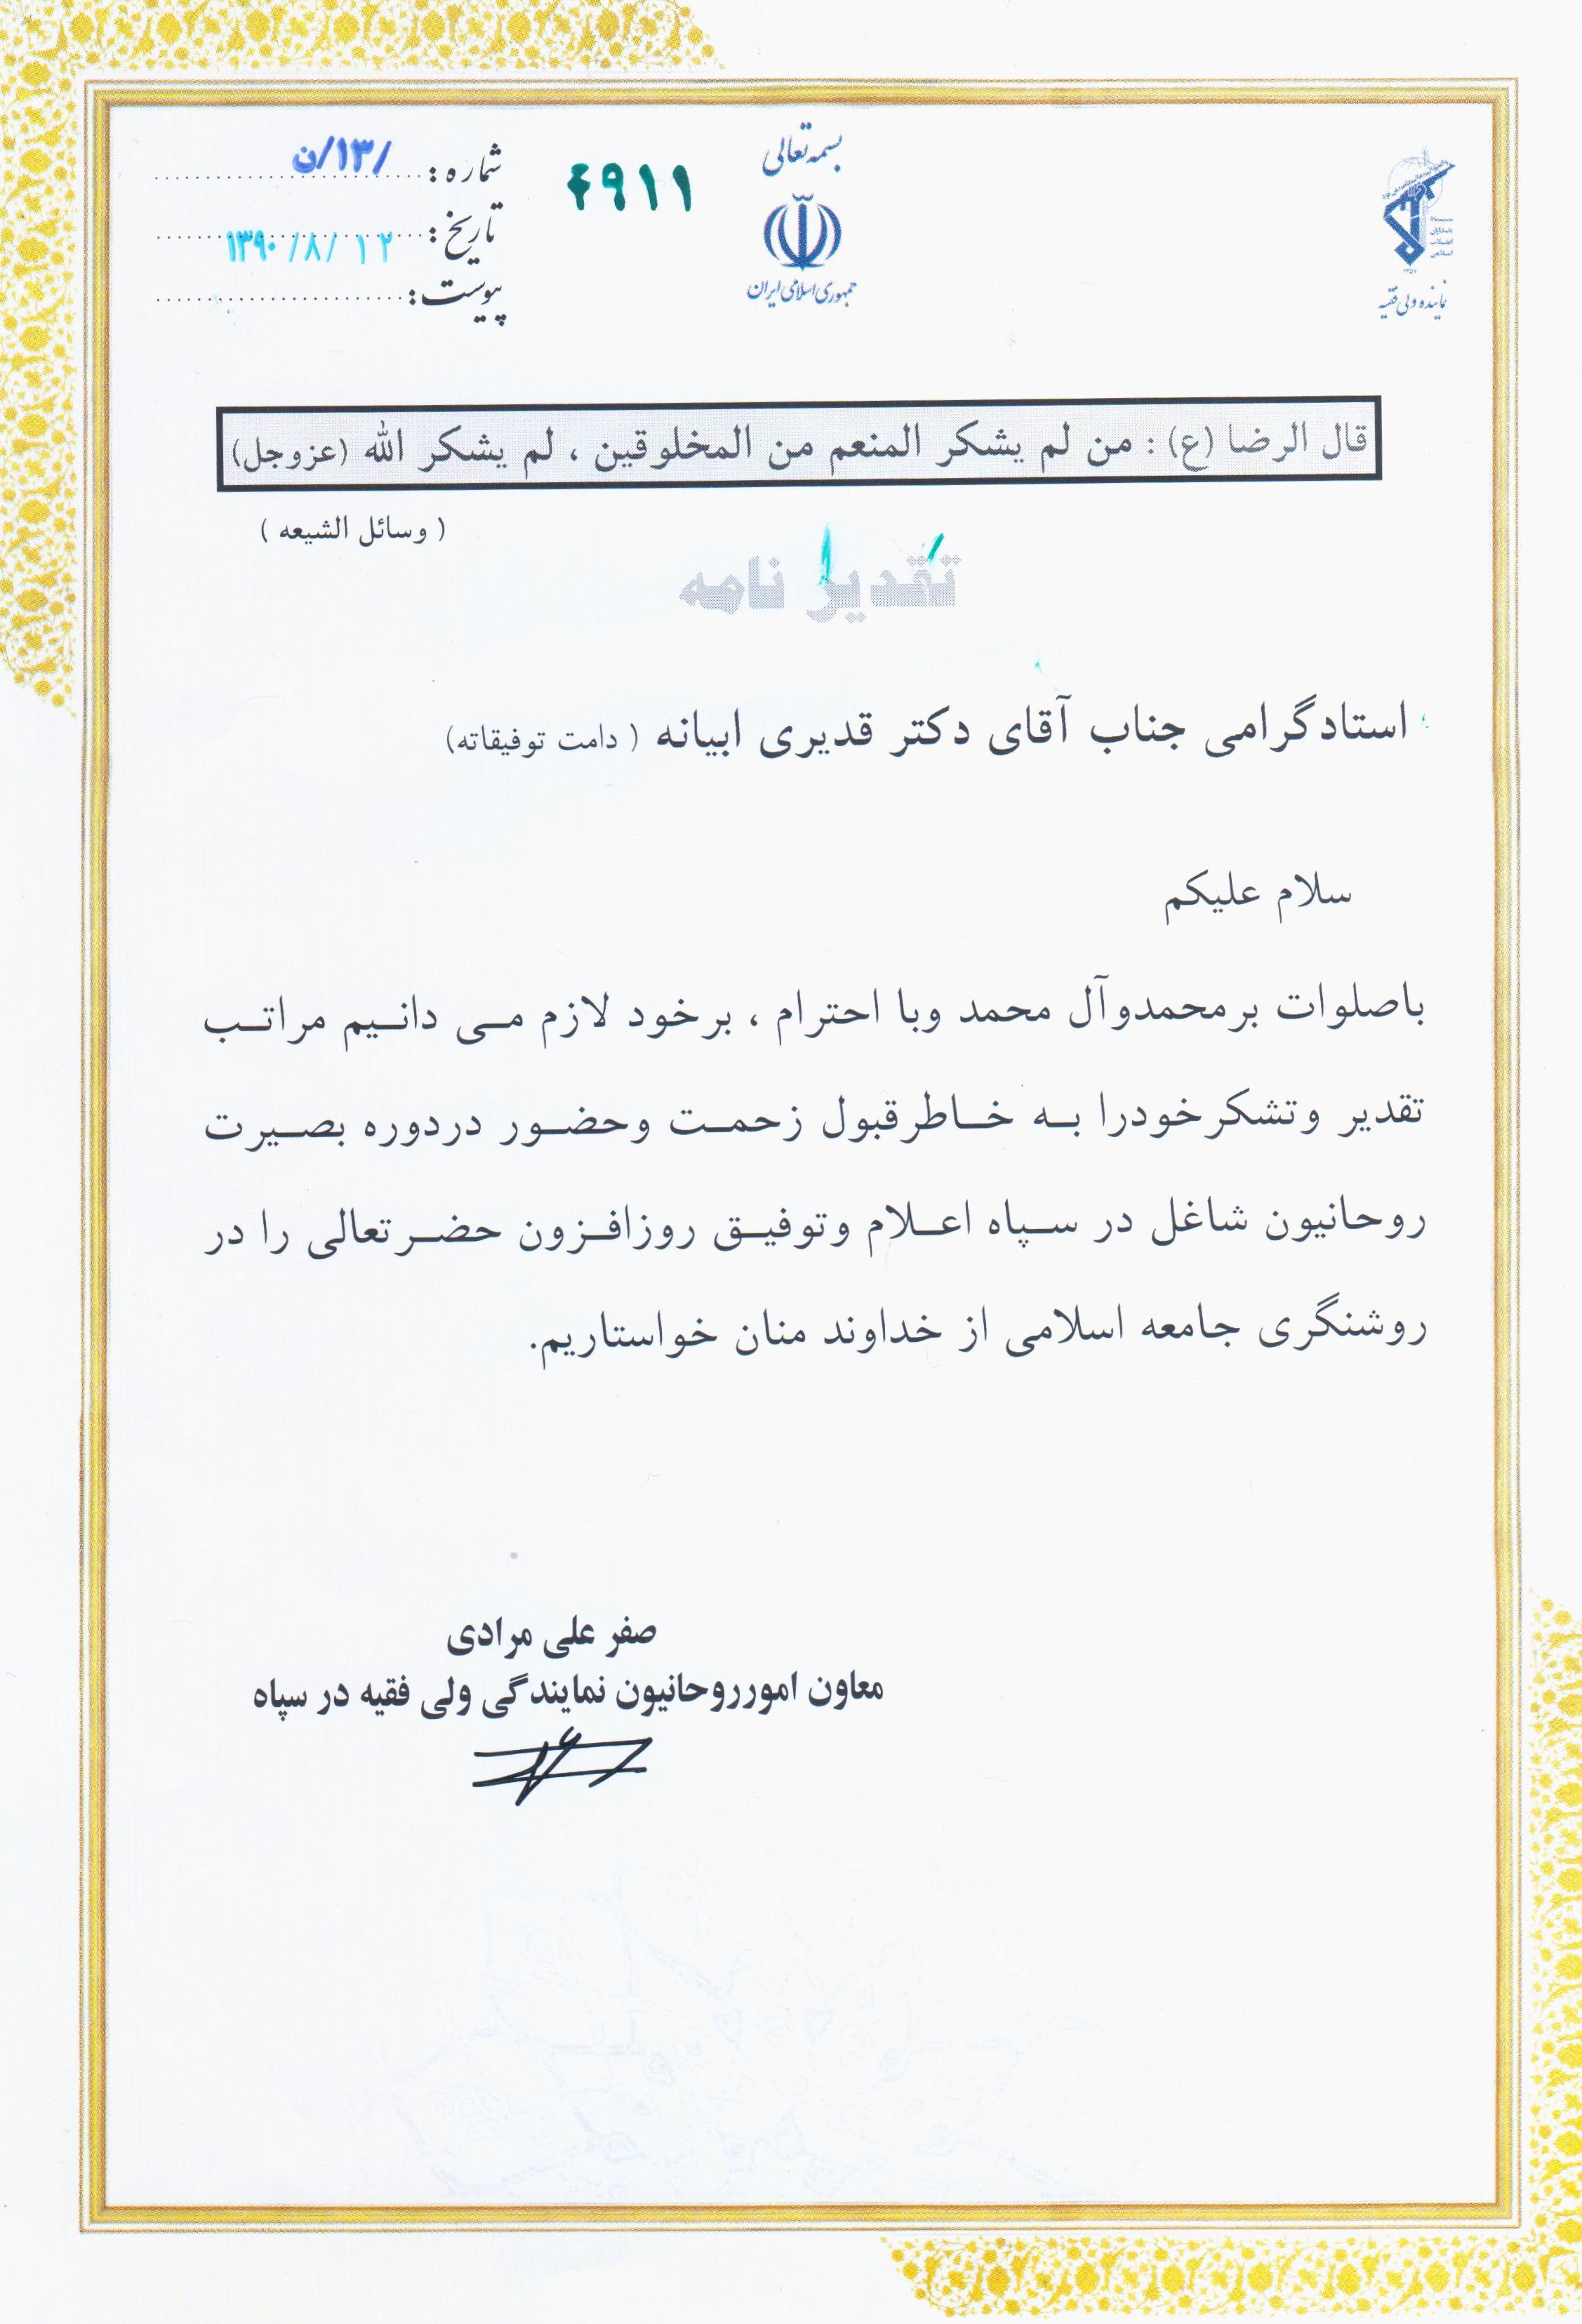 بسمه تعالی
جمهوری اسلامی ایران
سپاه
پاسداران
انقلاب
اسلامی
نماینده ولی فقیه
۴۹۱۱
شماره : /۱۳/ن
تاریخ : ۱۳۹۰/۸/۱۲
پیوست :
قال الرضا (ع) : من لم یشکر المنعم من المخلوقین ، لم یشکر الله (عزوجل)
( وسائل الشیعه )
تقدیر نامه
استادگرامی جناب آقای دکتر قدیری ابیانه ( دامت توفیقاته)
سلام علیکم
باصلوات برمحمدوآل محمد وبا احترام ، برخود لازم می دانیم مراتب
تقدیر وتشکرخودرا به خاطرقبول زحمت وحضور دردوره بصیرت
روحانیون شاغل در سپاه اعلام وتوفیق روزافزون حضرتعالی را در
روشنگری جامعه اسلامی از خداوند منان خواستاریم.
صفر علی مرادی
معاون امورروحانیون نمایندگی ولی فقیه در سپاه